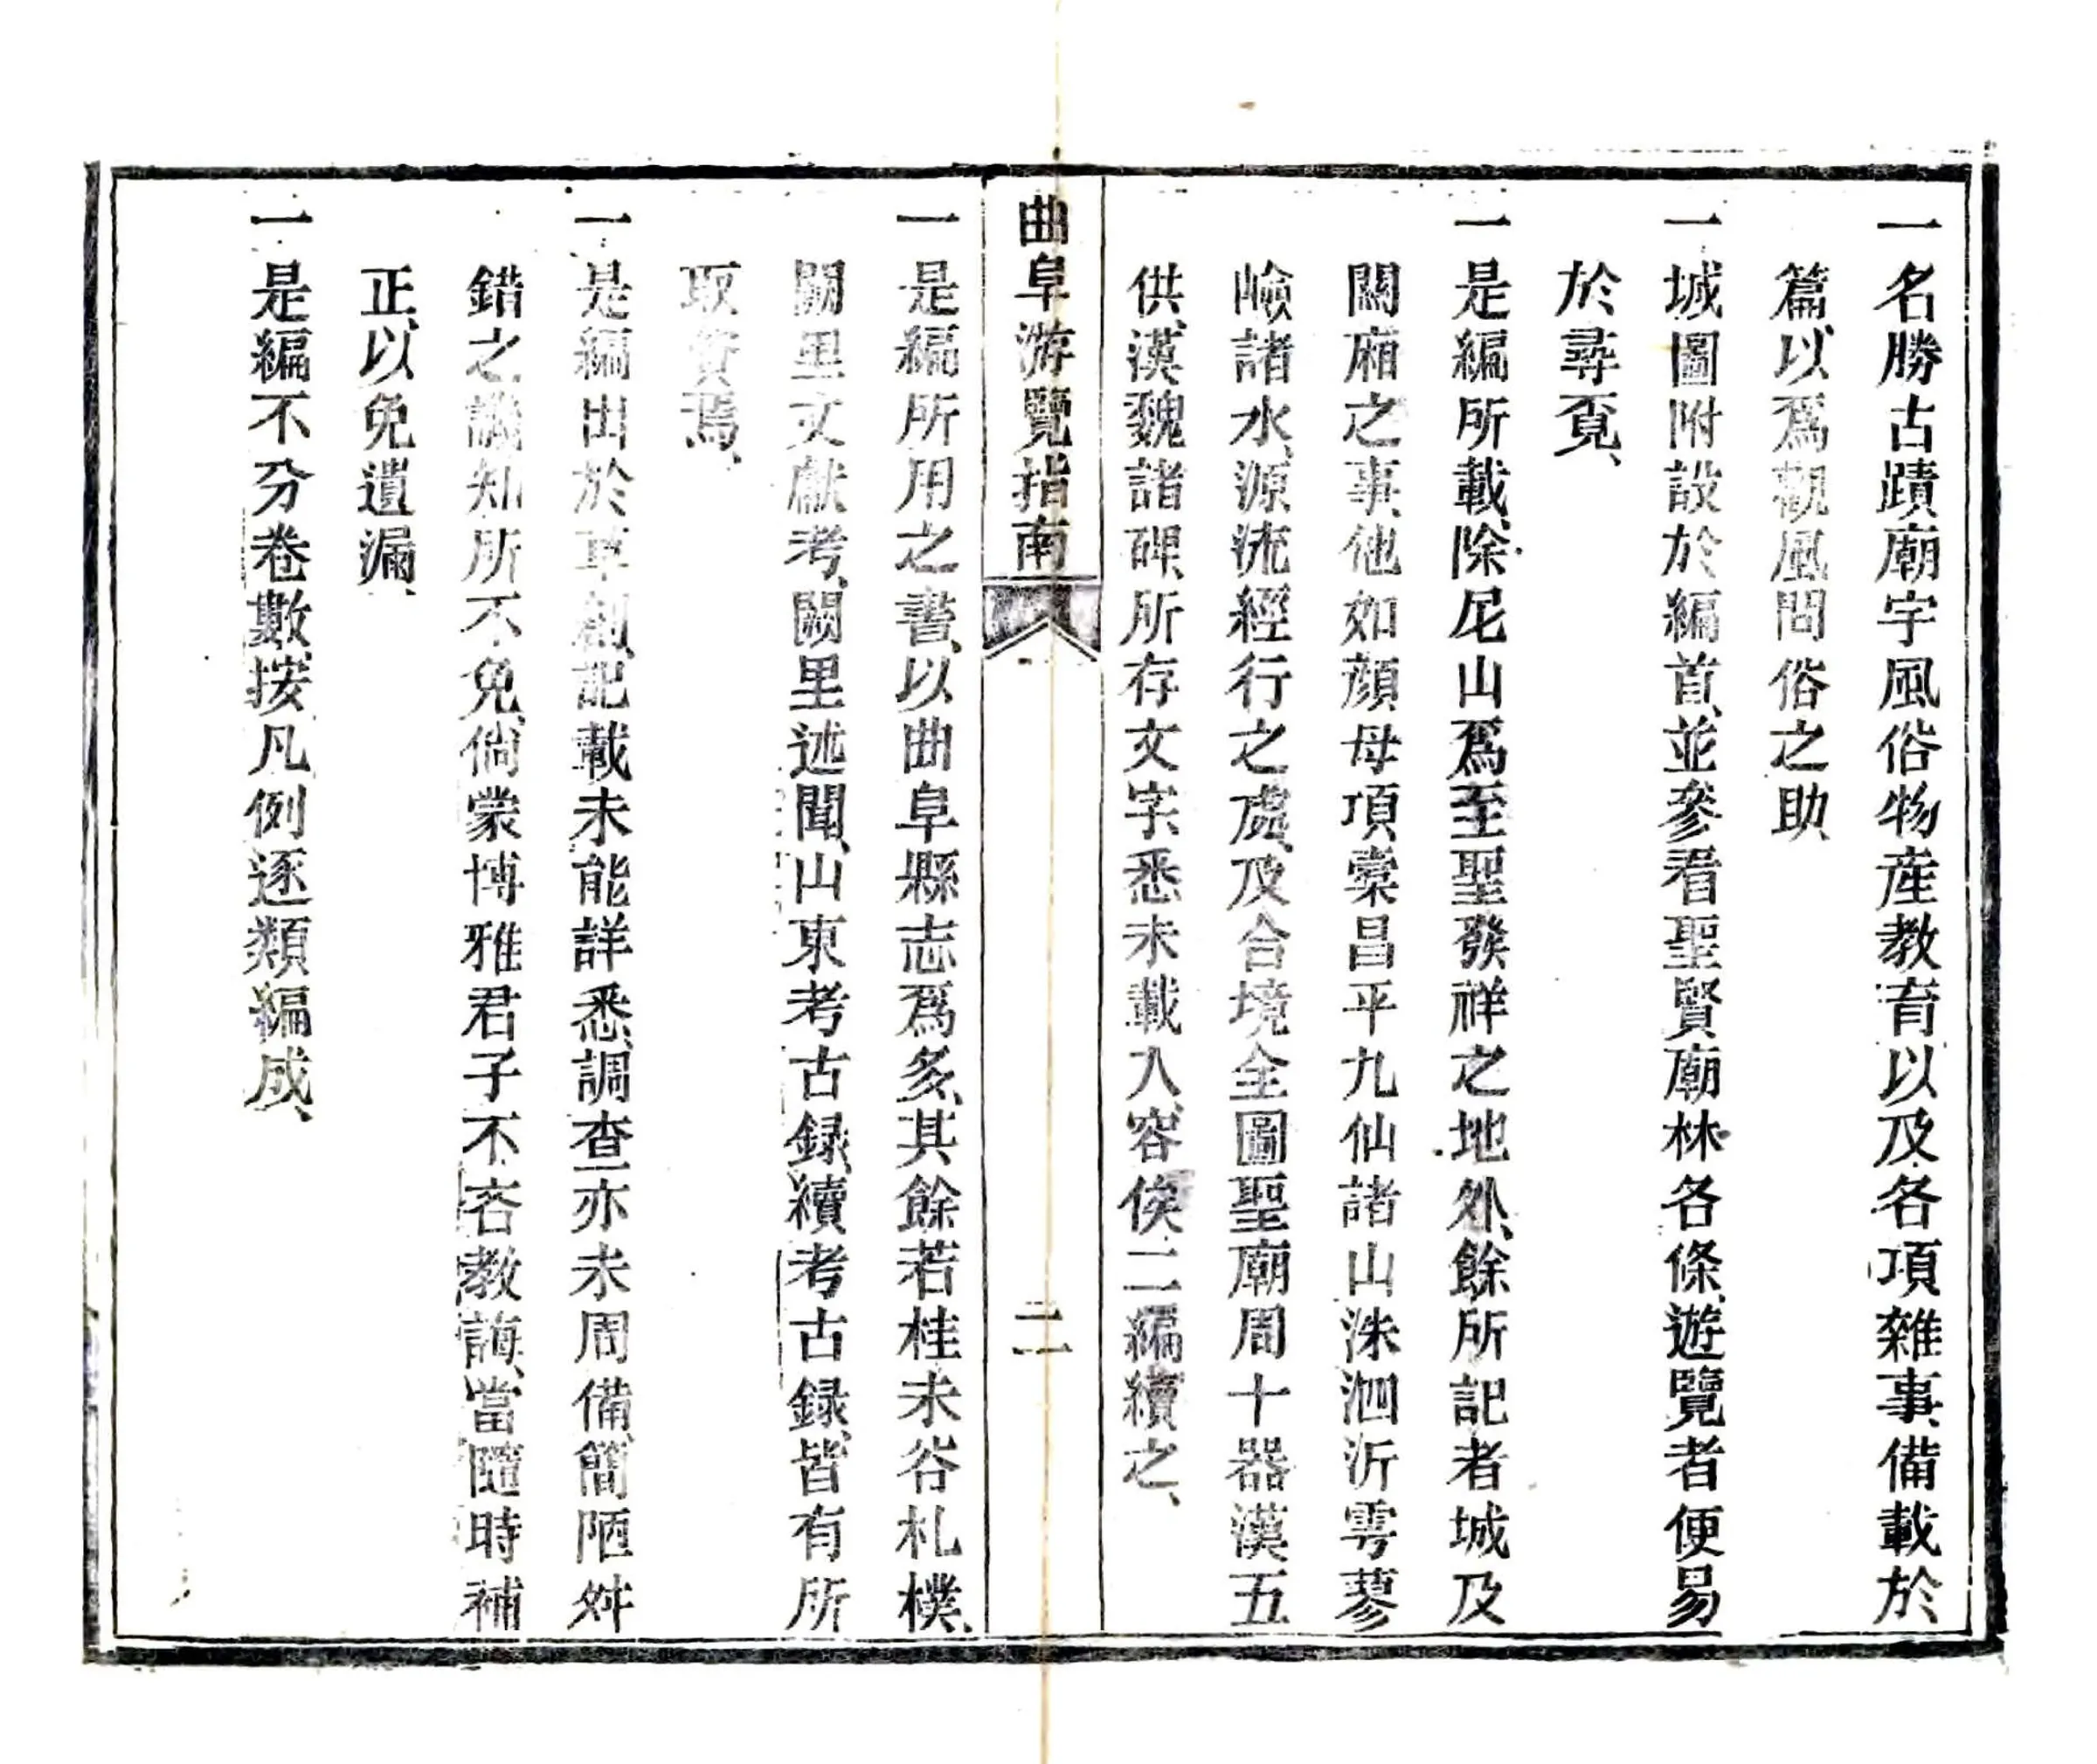 一名勝古蹟廟宇風俗物產教育以及各項雜事、備載於
篇、以爲觀風問俗之助、
一城圖附設於編首、並參看聖賢廟林各條、遊覽者便易
於尋覓、
一是編所載、除尼山爲至聖發祥之地外、餘所記者城及
關廂之事、他如顏母項橐昌平九仙諸山洙泗沂雩蓼
嶮諸水、源流經行之處、及合境全圖聖廟周十器漢五
供、漢魏諸碑、所存文字、悉未載入、容俟二編續之、
曲阜游覽指南
二一
一是編所用之書、以曲阜縣志爲多、其餘若桂未谷札樸、
闕里文獻考、闕里述聞、山東考古録、續考古録、皆有所
取資焉、
一是編出於草創、記載未能詳悉、調查亦未周備、簡陋舛
錯之譏、知所不免、倘蒙博雅君子不吝教誨、當隨時補
正、以免遺漏、
一是編不分卷數、按凡例逐類編成、